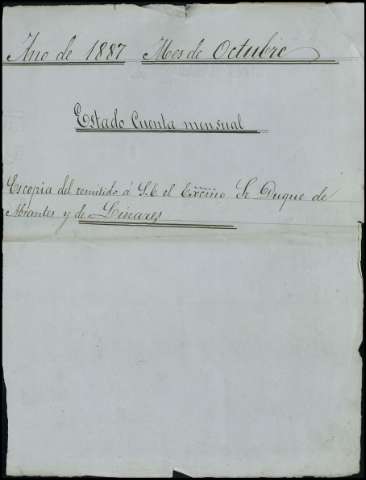 Año de 1887 Mes de Octubre
Estado Cuenta mensual
Es copia del remitido á S.E. el Excmo. Sr Duque de
Abrantes y de Linares